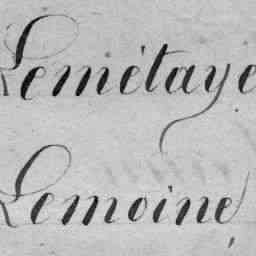 Lemétaye
Lemoine,